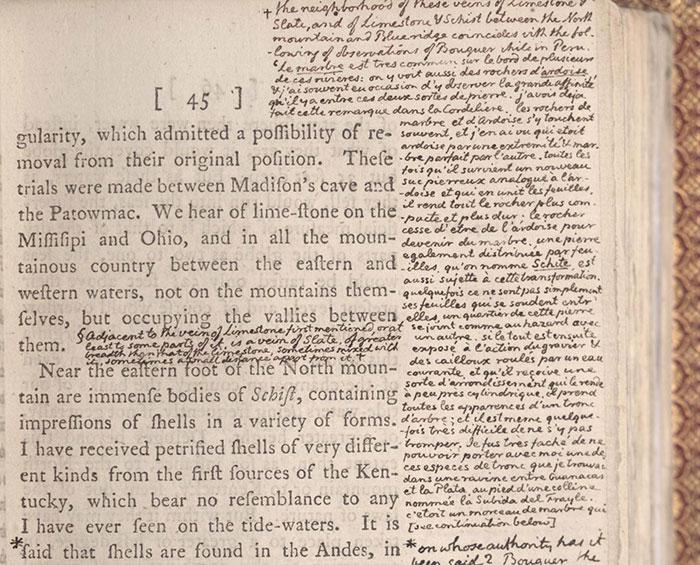 + the neighborhood of these veins of Limestone &
Slate, and of Limestone & Schist between the North
mountain and Blue ridge coincides with the fol-
lowing of observations of Bouguer while in Peru.
'Le marbre est tres commun sur le bord de plusieurs
de ces rivieres: on y voit aussi des rochers d'ardoise
& j'ai souvent eu occasion d'y observer la grande affinité
qu'il y a entre ces deux sortes de pierre. j'avois deja
fait cette remarque dans la Cordeliere. les rochers de
marbre et d'Ardoise s'y touchent
souvent, et j'en ai vu qui etoit
ardoise par une extremité & mar-
bre parfait par l'autre. toutes les
fois qu'il survient un nouveau
suc pierreux analogue à l'ar-
doise et qui en unit les feuilles,
il rend tout le rocher plus com-
pacte et plus dur; le rocher
cesse d'etre de l'ardoise pour
devenir du marbre. une pierre
egalement distribuée par feu-
illes, qu'on nomme Schite, est
aussi sujette à cette transformation.
quelquefois ce ne sont pas simplement
ses feuilles qui se soudent entr'
elles, un quartier de cette pierre
se joint comme au hazard avec
un autre. si le tout est ensuite
exposé à l'action du gravier &
des cailloux roulés par un eau
courante, et qu'il reçoive une
sorte d'arrondissement qui le rende
à peu pres cylindrique, il prend
toutes les apparences d'un tronc
d'arbre; et il est meme quelque-
fois tres difficile de ne s'y pas
tromper. Je fus tres faché de ne
pouvoir porter avec moi une de
ces especes de tronc que je trouvai
dans une ravine entre Guanacas
et la Plata, au pied d'une colline
nommée la Subida del Frayle.
c'etoit un morceau de marbre qui
[see continuation below]
[ 45 ]
gularity, which admitted a poſſibility of re-
moval from their original poſition. Theſe
trials were made between Madiſon's cave and
the Patowmac. We hear of lime-ſtone on the
Miſſiſipi and Ohio, and in all the moun-
tainous country between the eaſtern and
weſtern waters, not on the mountains them-
ſelves, but occupying the vallies between
them. § Adjacent to the vein of Limestone first mentioned, or at
least some parts of it, is a vein of Slate, of greater
breadth than that of the limestone, sometimes mixed with
it, sometimes a small distance apart from it +
Near the eaſtern foot of the North moun-
tain are immenſe bodies of Schiſt, containing
impreſſions of ſhells in a variety of forms.
I have received petrified ſhells of very differ-
ent kinds from the firſt ſources of the Ken-
tucky, which bear no reſemblance to any
I have ever ſeen on the tide-waters. It is
*ſaid that ſhells are found in the Andes, in
* on whose authority has it
been said? Bouguer the